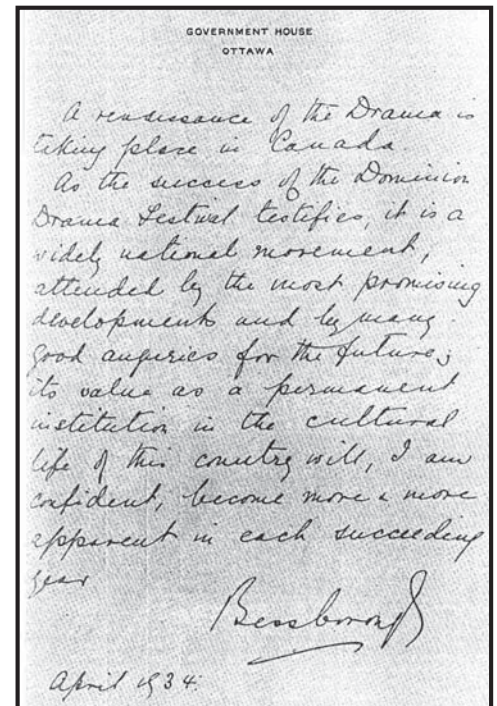 GOVERNMENT HOUSE
OTTAWA
A renaissance of the Drama is
taking place in Canada
As the success of the Dominion
Drama Festival testifies, it is a
widely national movement,
attended by the most promising
developments and by many
good auguries for the future;
its value as a permanent
institution in the cultural
life of this country will, I am
confident, become more & more
apparent in each succeeding
year
Bessborough
April 1934.